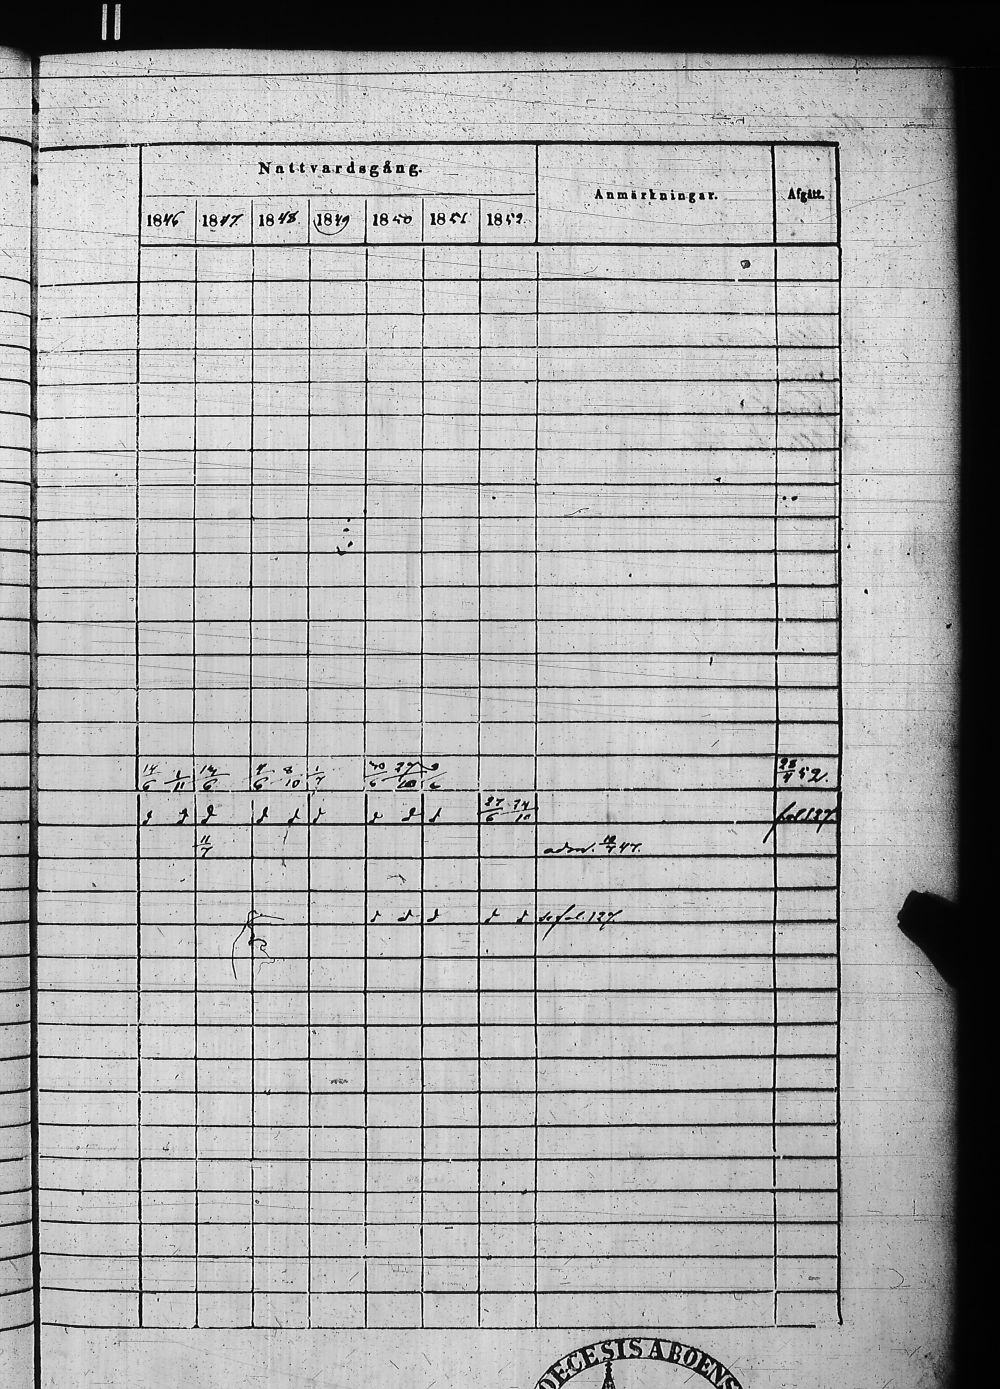 Nattvardsgång. Anmärkningar. Afgått.
1846 1847. 1848 1849 1850 1851 1852.
14/6 1/11 14/6 4/6 8/10 1/7 30/6 27/10 9/6 28/4 52.
d d d d d d d d d 27/6 24/10 fol. 127.
11/7 adm. 10/7 47.
d d d d d se fol. 127.
DECESIS ABOENS